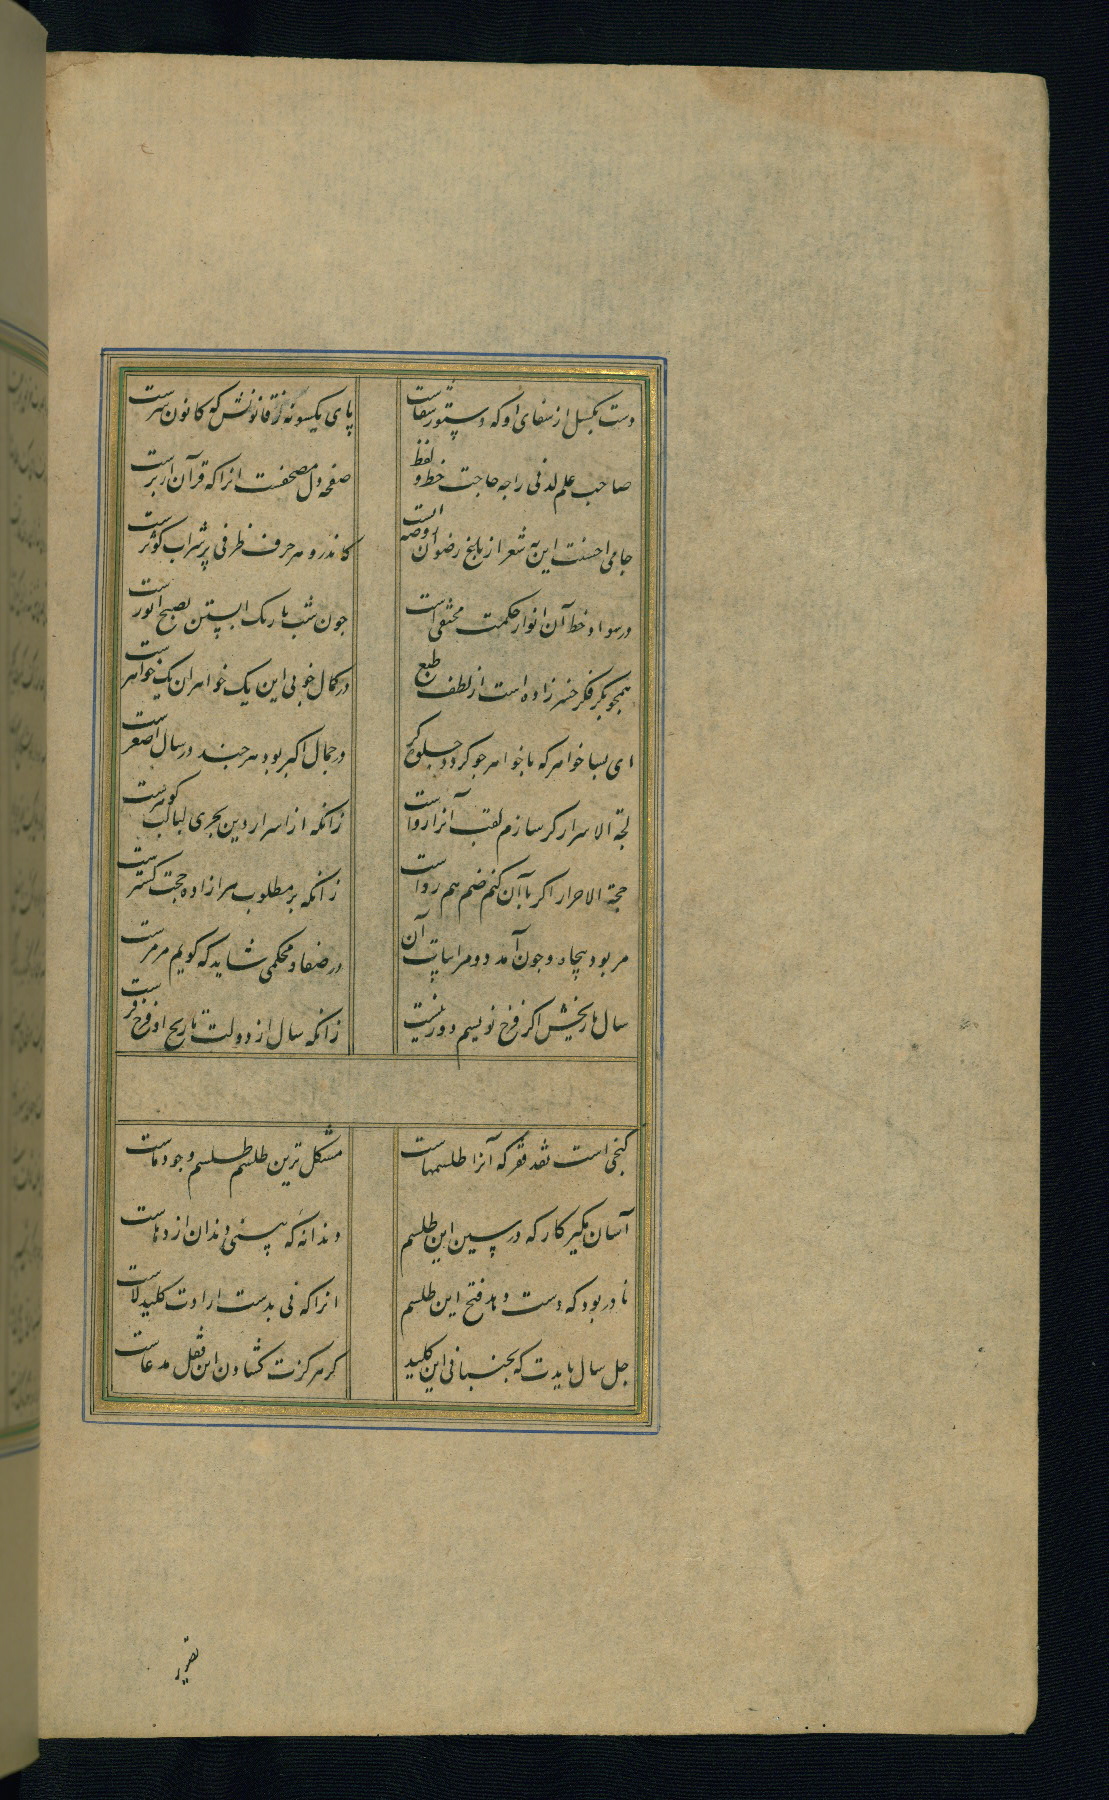 دست بگسل از شفای او که دستور شقاست
پای یکسو نه ز قانونش که کانون شرست
صاحب علم لدنی را چه حاجت خط و لفظ
صفحه دل مصحفست انرا که قرآن از برست
جامی احسنت این نه شعر از باغ رضوان روضه ایست
کاندرو هر حرف ظرفی پر شراب کوثرست
در سواد خط آن انوار حکمت مختفی است
چون شب تاریک ابستن بصبح انورست
همچو بکر فکر خسرو زاده است از لطف طبع
در کمال خوبی این یک خواهر ان یک خواهرست
ای بسا خواهر که با خواهر چو کردد جلوه کر
در جمال اکبر بود هر چند در سال اصغرست
لجة الاسرار کر سازم لقب آنرا رواست
زانکه از اسرار دین بحری لبالب کوهرست
حجة الاحرار اکر با آن کنم ضم هم رواست
زانکه بر مطلوب هر ازاده حجت کسترست
مر بود پنجاه و چون آمد دو مر ابیات آن
در صفا و محکمی شاید که کویم مرمرست
سال تاریخش اکر فرخ نویسم دور نیست
زانکه سال از دولت تاریخ او فرخ فرست
کنجی است نقد فقر که آنرا طلسمهاست
مشکل ترین طلسم طلسم وجود ماست
آسان مکیر کار که در سین این طلسم
دندانه که بینی دندان اژدهاست
نادر بود که دست دهد فتح این طلسم
انرا که نی بدست ارادت کلید لاست
چل سال بایدت که بجنبانی این کلید
کر هرکزت کشادن این قفل مدعاست
تقریر